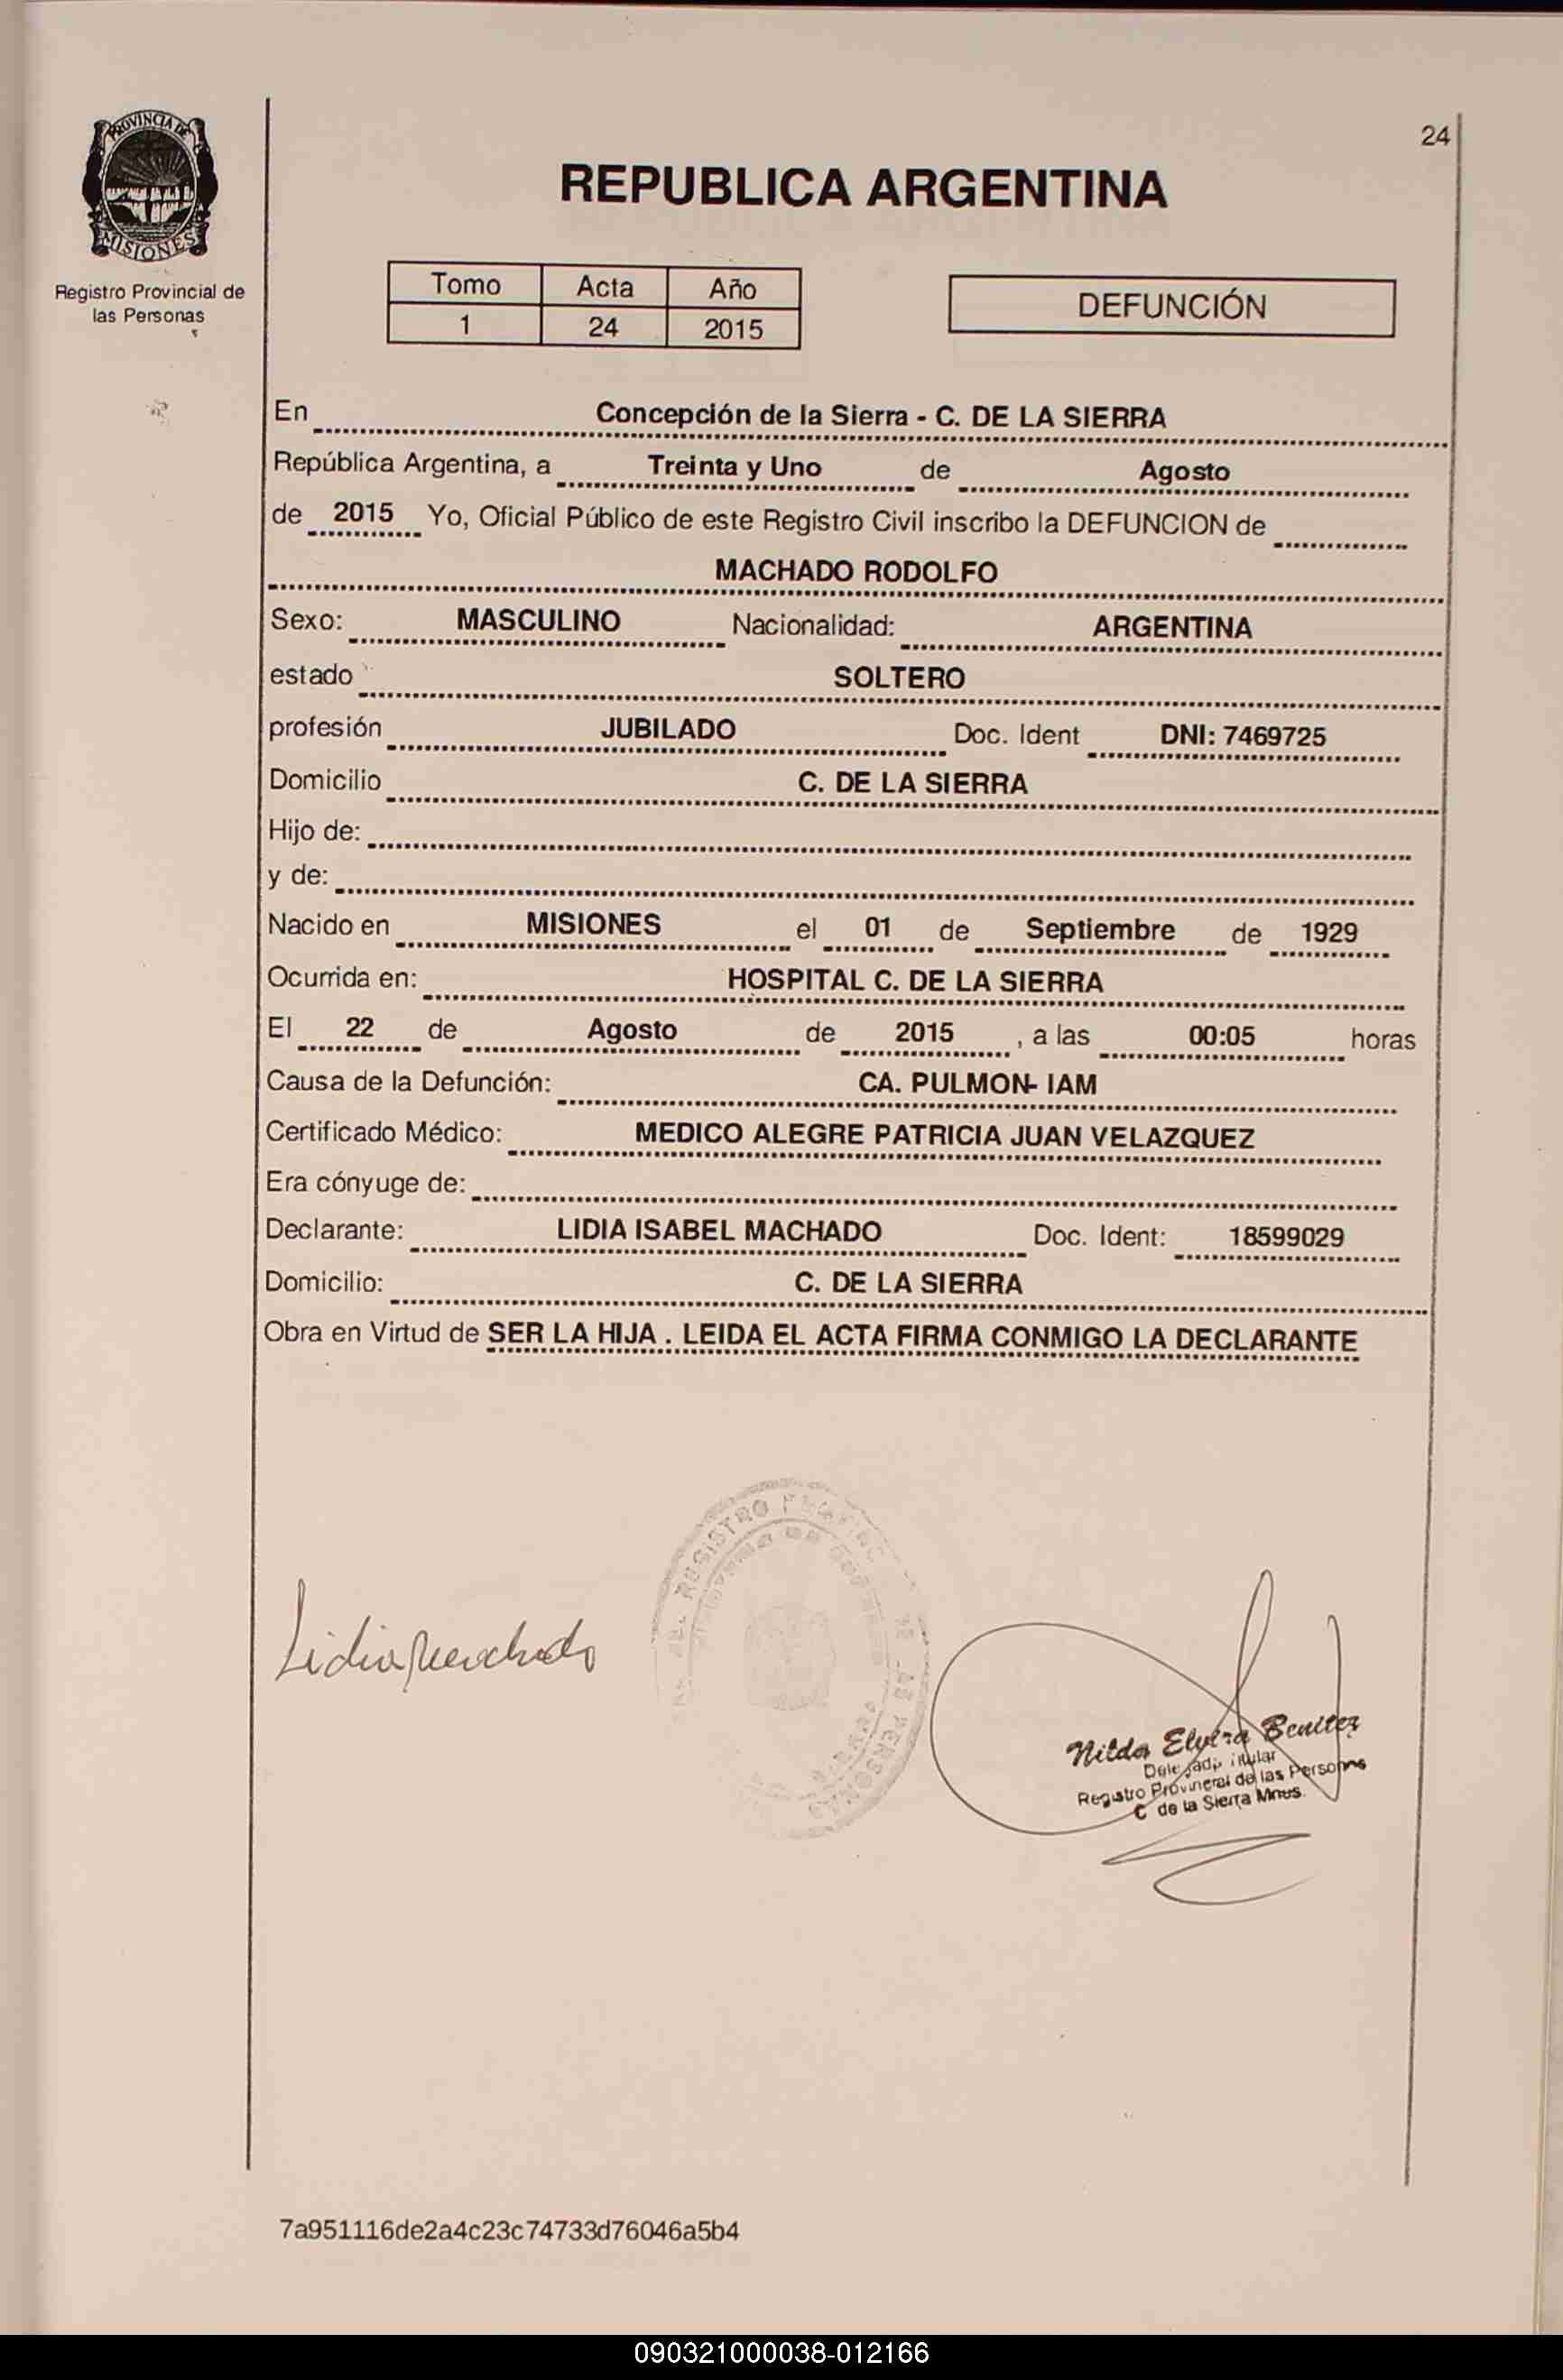 24
PROVINCIA DE
MISIONES
Registro Provincial de
las Personas
REPUBLICA ARGENTINA
Tomo Acta Año
1 24 2015
DEFUNCIÓN
En Concepción de la Sierra - C. DE LA SIERRA
República Argentina, a Treinta y Uno de Agosto
de 2015 Yo, Oficial Público de este Registro Civil inscribo la DEFUNCION de
MACHADO RODOLFO
Sexo: MASCULINO Nacionalidad: ARGENTINA
estado SOLTERO
profesión JUBILADO Doc. Ident DNI: 7469725
Domicilio C. DE LA SIERRA
Hijo de:
y de:
Nacido en MISIONES el 01 de Septiembre de 1929
Ocurrida en: HOSPITAL C. DE LA SIERRA
El 22 de Agosto de 2015 , a las 00:05 horas
Causa de la Defunción: CA. PULMON- IAM
Certificado Médico: MEDICO ALEGRE PATRICIA JUAN VELAZQUEZ
Era cónyuge de:
Declarante: LIDIA ISABEL MACHADO Doc. Ident: 18599029
Domicilio: C. DE LA SIERRA
Obra en Virtud de SER LA HIJA . LEIDA EL ACTA FIRMA CONMIGO LA DECLARANTE
REGISTRO
DE LAS PERSONAS
Lidia Machado
Nilda Elvira Benitez
Titular
Registro Provincial de las Personas
C de la Sierra Mnes.
7a951116de2a4c23c74733d76046a5b4
090321000038-012166